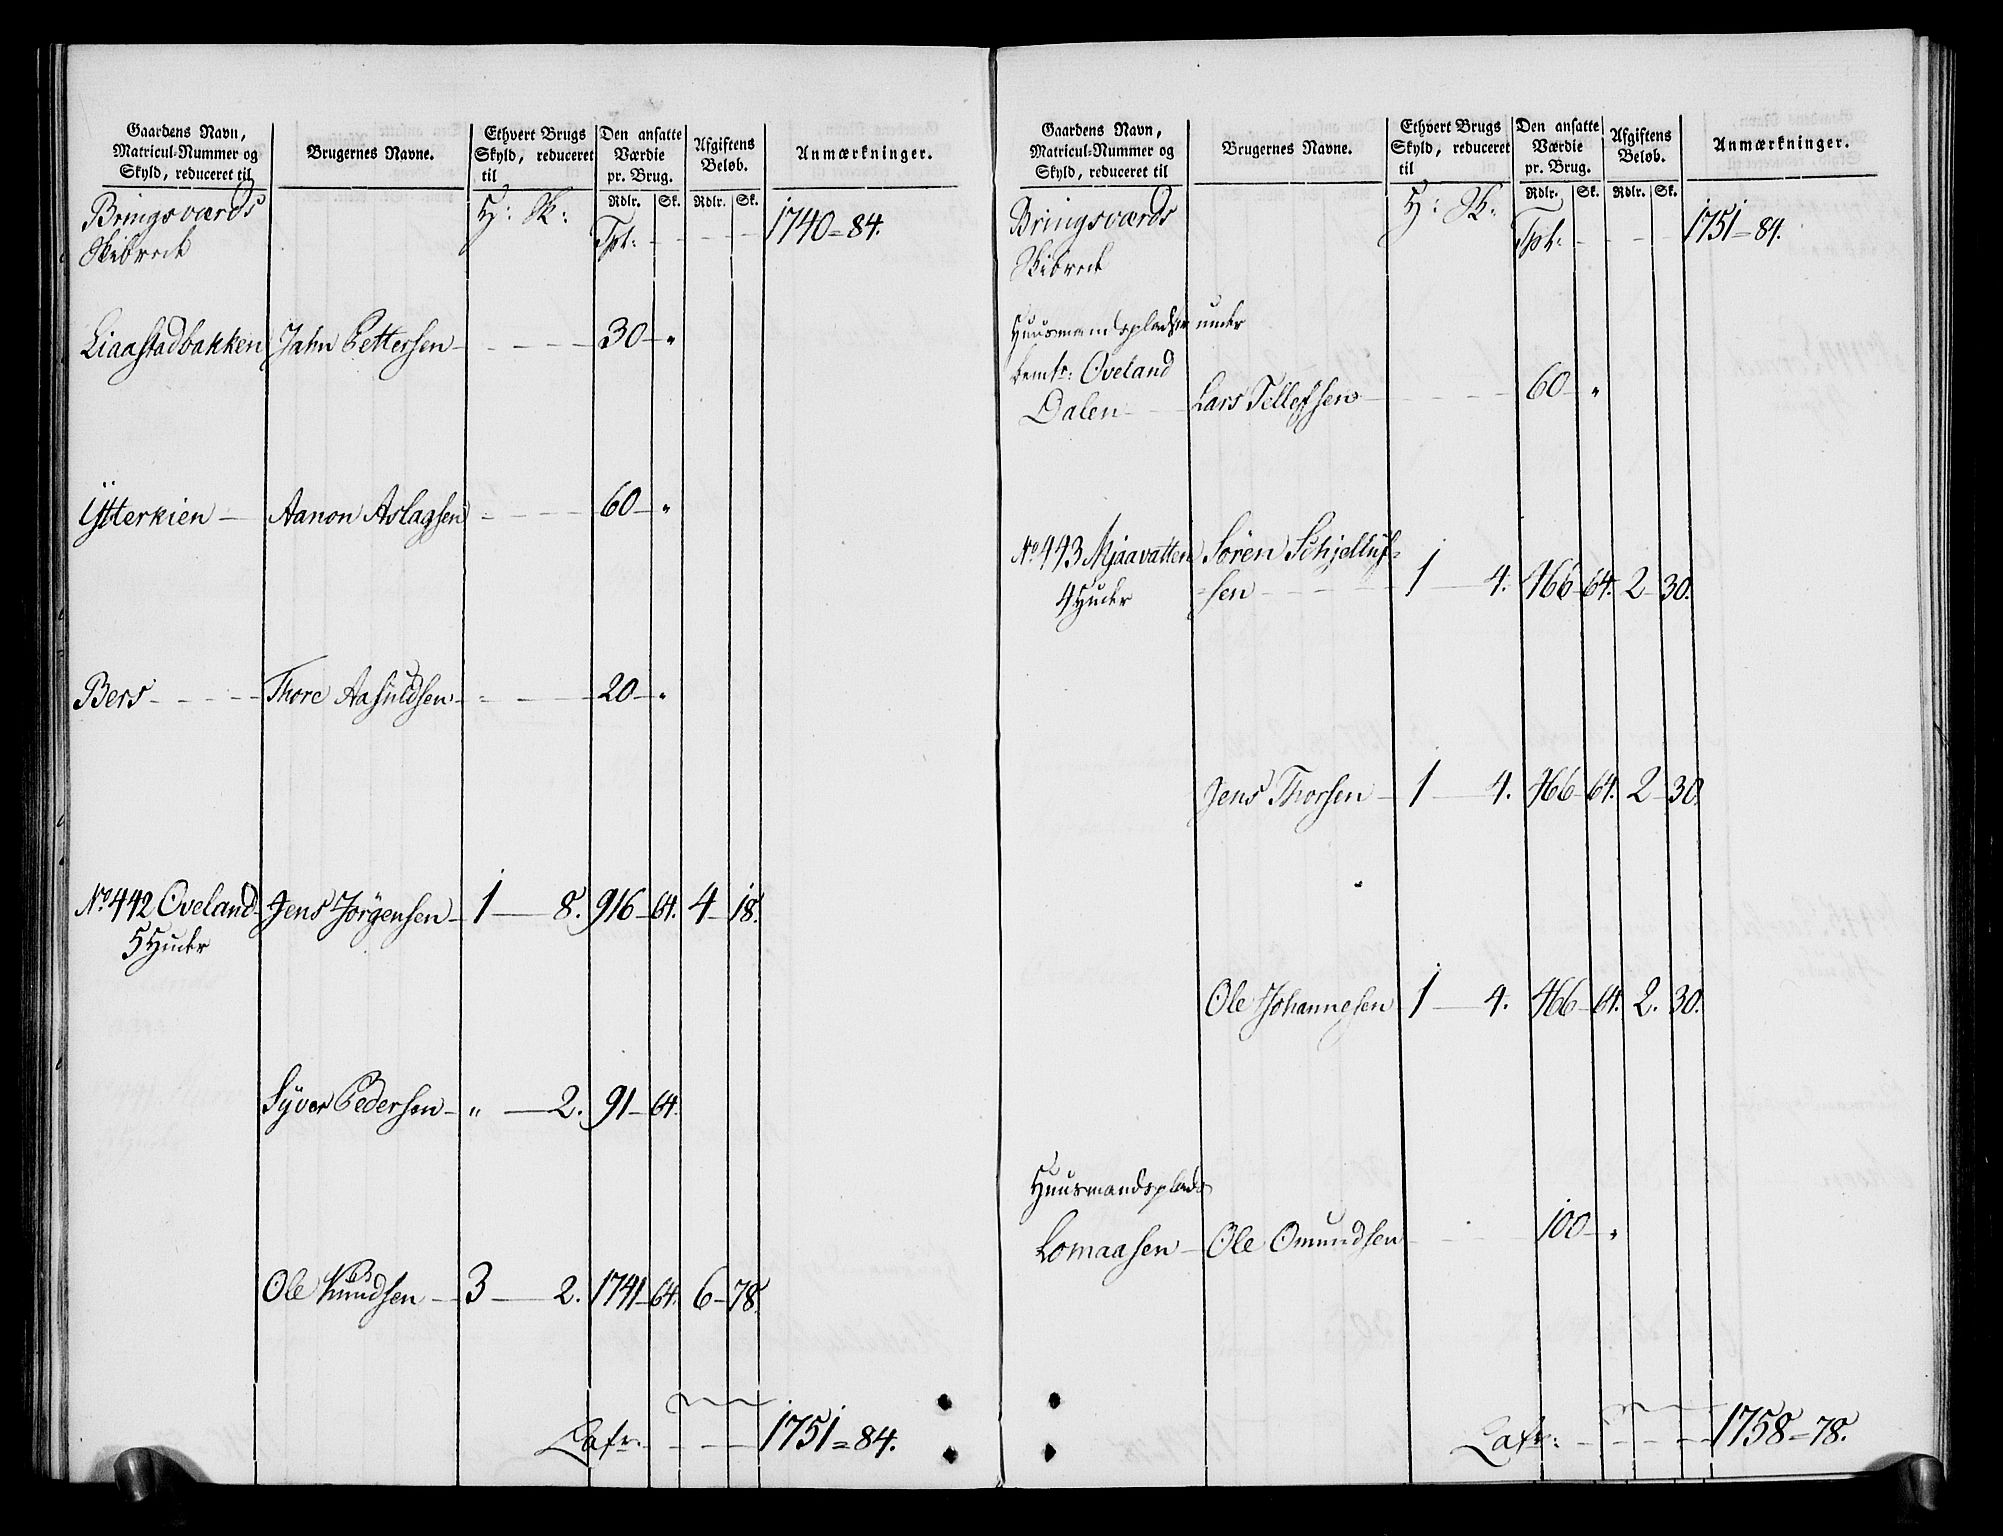 Gaardens Navn, Matricul-Nummer og Skyld, reduceret til | Brugernes Navne. | Ethvert Brugs Skyld, reduceret til | Den ansatte Værdie pr. Brug. | Afgiftens Beløb. | Anmærkninger.
Rdlr. | Sk. | Rdlr. | Sk.
Bringsværds H: Sk: Tpt: - - - 1740=84.
Skibrede
Liaastadbakken Jahn Pettersen - - - 30 - "
Ytterkien - Aanon Aslagsen - - - 60 - "
Bers - - - Thore Aasuldsen - - - 20 - "
No 442 Oveland Jens Jörgensen - 1 - 8. 916 - 64. 4 - 18.
5 Huder
Syver Pedersen - " - 2. 91 - 64.
Ole Knudsen - 3 - 2. 1741 - 64. 6 - 78.
Lafr: - - - 1751=84.
Gaardens Navn, Matricul-Nummer og Skyld, reduceret til | Brugernes Navne. | Ethvert Brugs Skyld, reduceret til | Den ansatte Værdie pr. Brug. | Afgiftens Beløb. | Anmærkninger.
Rdlr. | Sk. | Rdlr. | Sk.
Bringsværds H: Sk: Tpt: - - - 1751=84.
Skibrede
Huusmandspladser under
bemte: Oveland
Dalen - Lars Tellefsen - - - 60 - "
No 443 Mjaavatten Sören Schjelluf=
4 Huder =sen - - - 1 - 4. 466 - 64. 2 - 30.
Jens Thorsen - 1 - 4. 466 - 64. 2 - 30.
Ole Johannesen 1 - 4. 466 - 64. 2. 30.
Huusmandsplads
Lomaasen - Ole Omundsen - - - 100 - "
Lafr: - - - 1758=78.